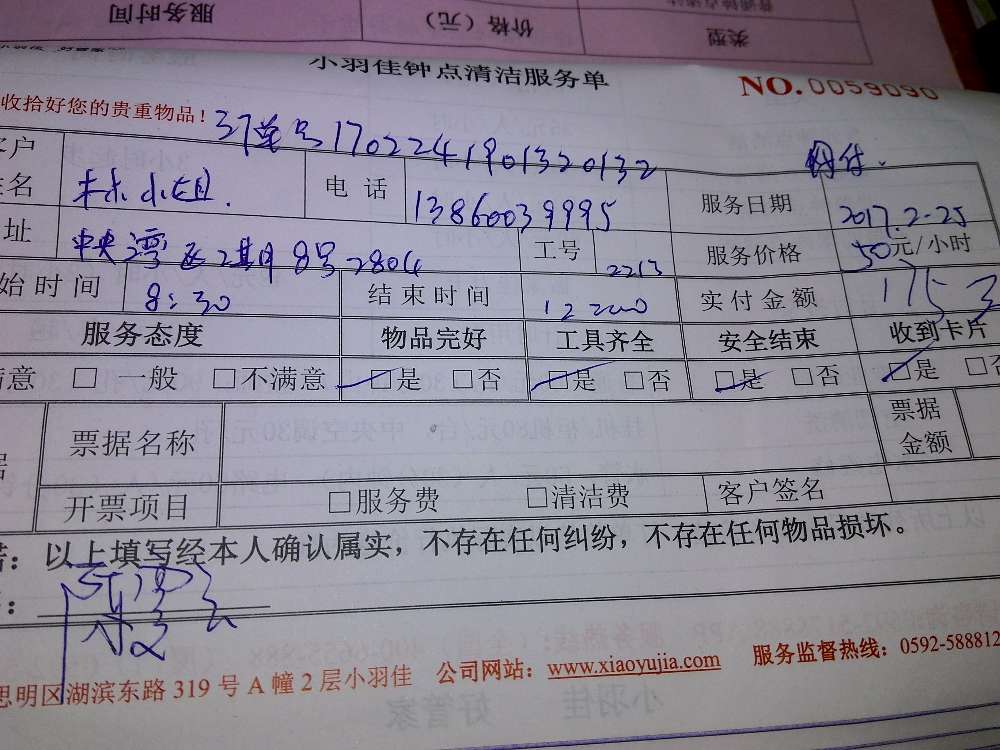 服务时间
价格（元）
类型
小羽佳钟点清洁服务单
NO.0059090
收拾好您的贵重物品！
订单号1702241901320132
网付.
客户
姓名 林小姐. 电话 13860039995 服务日期 2017.2-25
址 中央湾区2期8号2804 工号 2213 服务价格 50元/小时
始时间 8:30 结束时间 12:00 实付金额 175
服务态度 物品完好 工具齐全 安全结束 收到卡片
满意 □一般 □不满意 □是 □否 □是 □否 □是 □否 □是 □否
据 票据名称 票据金额
开票项目 □服务费 □清洁费 客户签名
诺：以上填写经本人确认属实，不存在任何纠纷，不存在任何物品损坏。
思明区湖滨东路319号A幢2层小羽佳 公司网站：www.xiaoyujia.com 服务监督热线：0592-588812